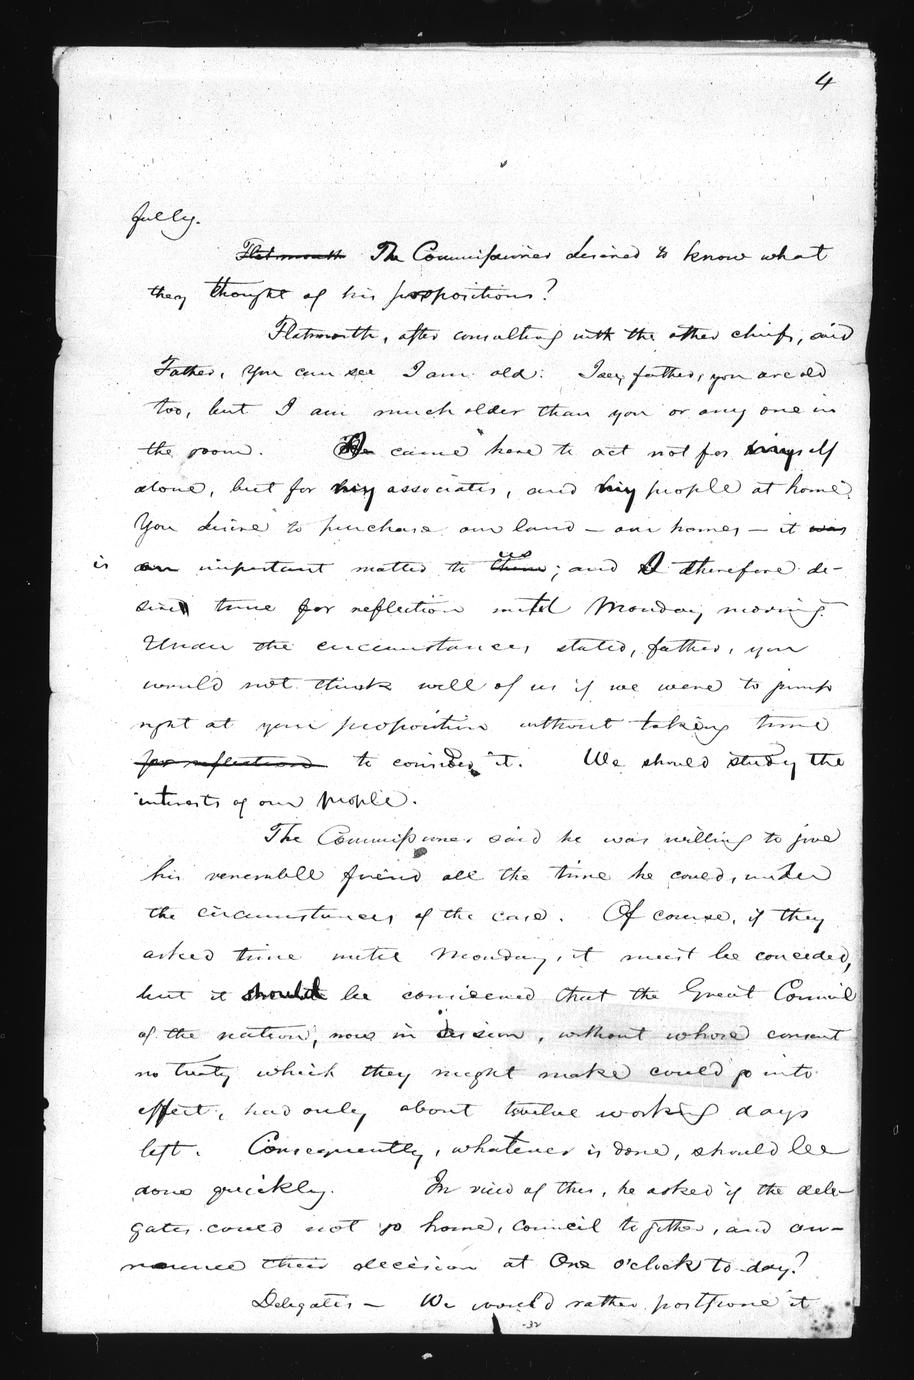 4
fully.
Flatmouth The Commissioner desired to know what
they thought of his propositions?
Flatmouth, after consulting with the other chiefs, said
Father, you can see I am old. I see, father, you are old
too, but I am much older than you or any one in
the room. I came here to act not for myself
alone, but for my associates, and my people at home.
You desire to purchase our land – our homes – it was
is an important matter to them us; and I therefore de-
sire time for reflection until Monday morning.
Under the circumstances, stated, father, you
would not think well of us if we were to jump
right at your proposition without taking time
for reflection to consider it. We should study the
interests of our people.
The Commissioner said he was willing to give
his venerable friend all the time he could, under
the circumstances of the case. Of course, if they
asked time until Monday, it must be conceded,
but it should be considered that the Great Council
of the nation, now in session, without whose consent
no treaty which they might make could go into
effect, had only about twelve working days
left. Consequently, whatever is done, should be
done quickly. In view of this, he asked if the dele-
gates could not go home, council together, and an-
nounce their decision at One o'clock to-day?
Delegates – We would rather postpone it
32